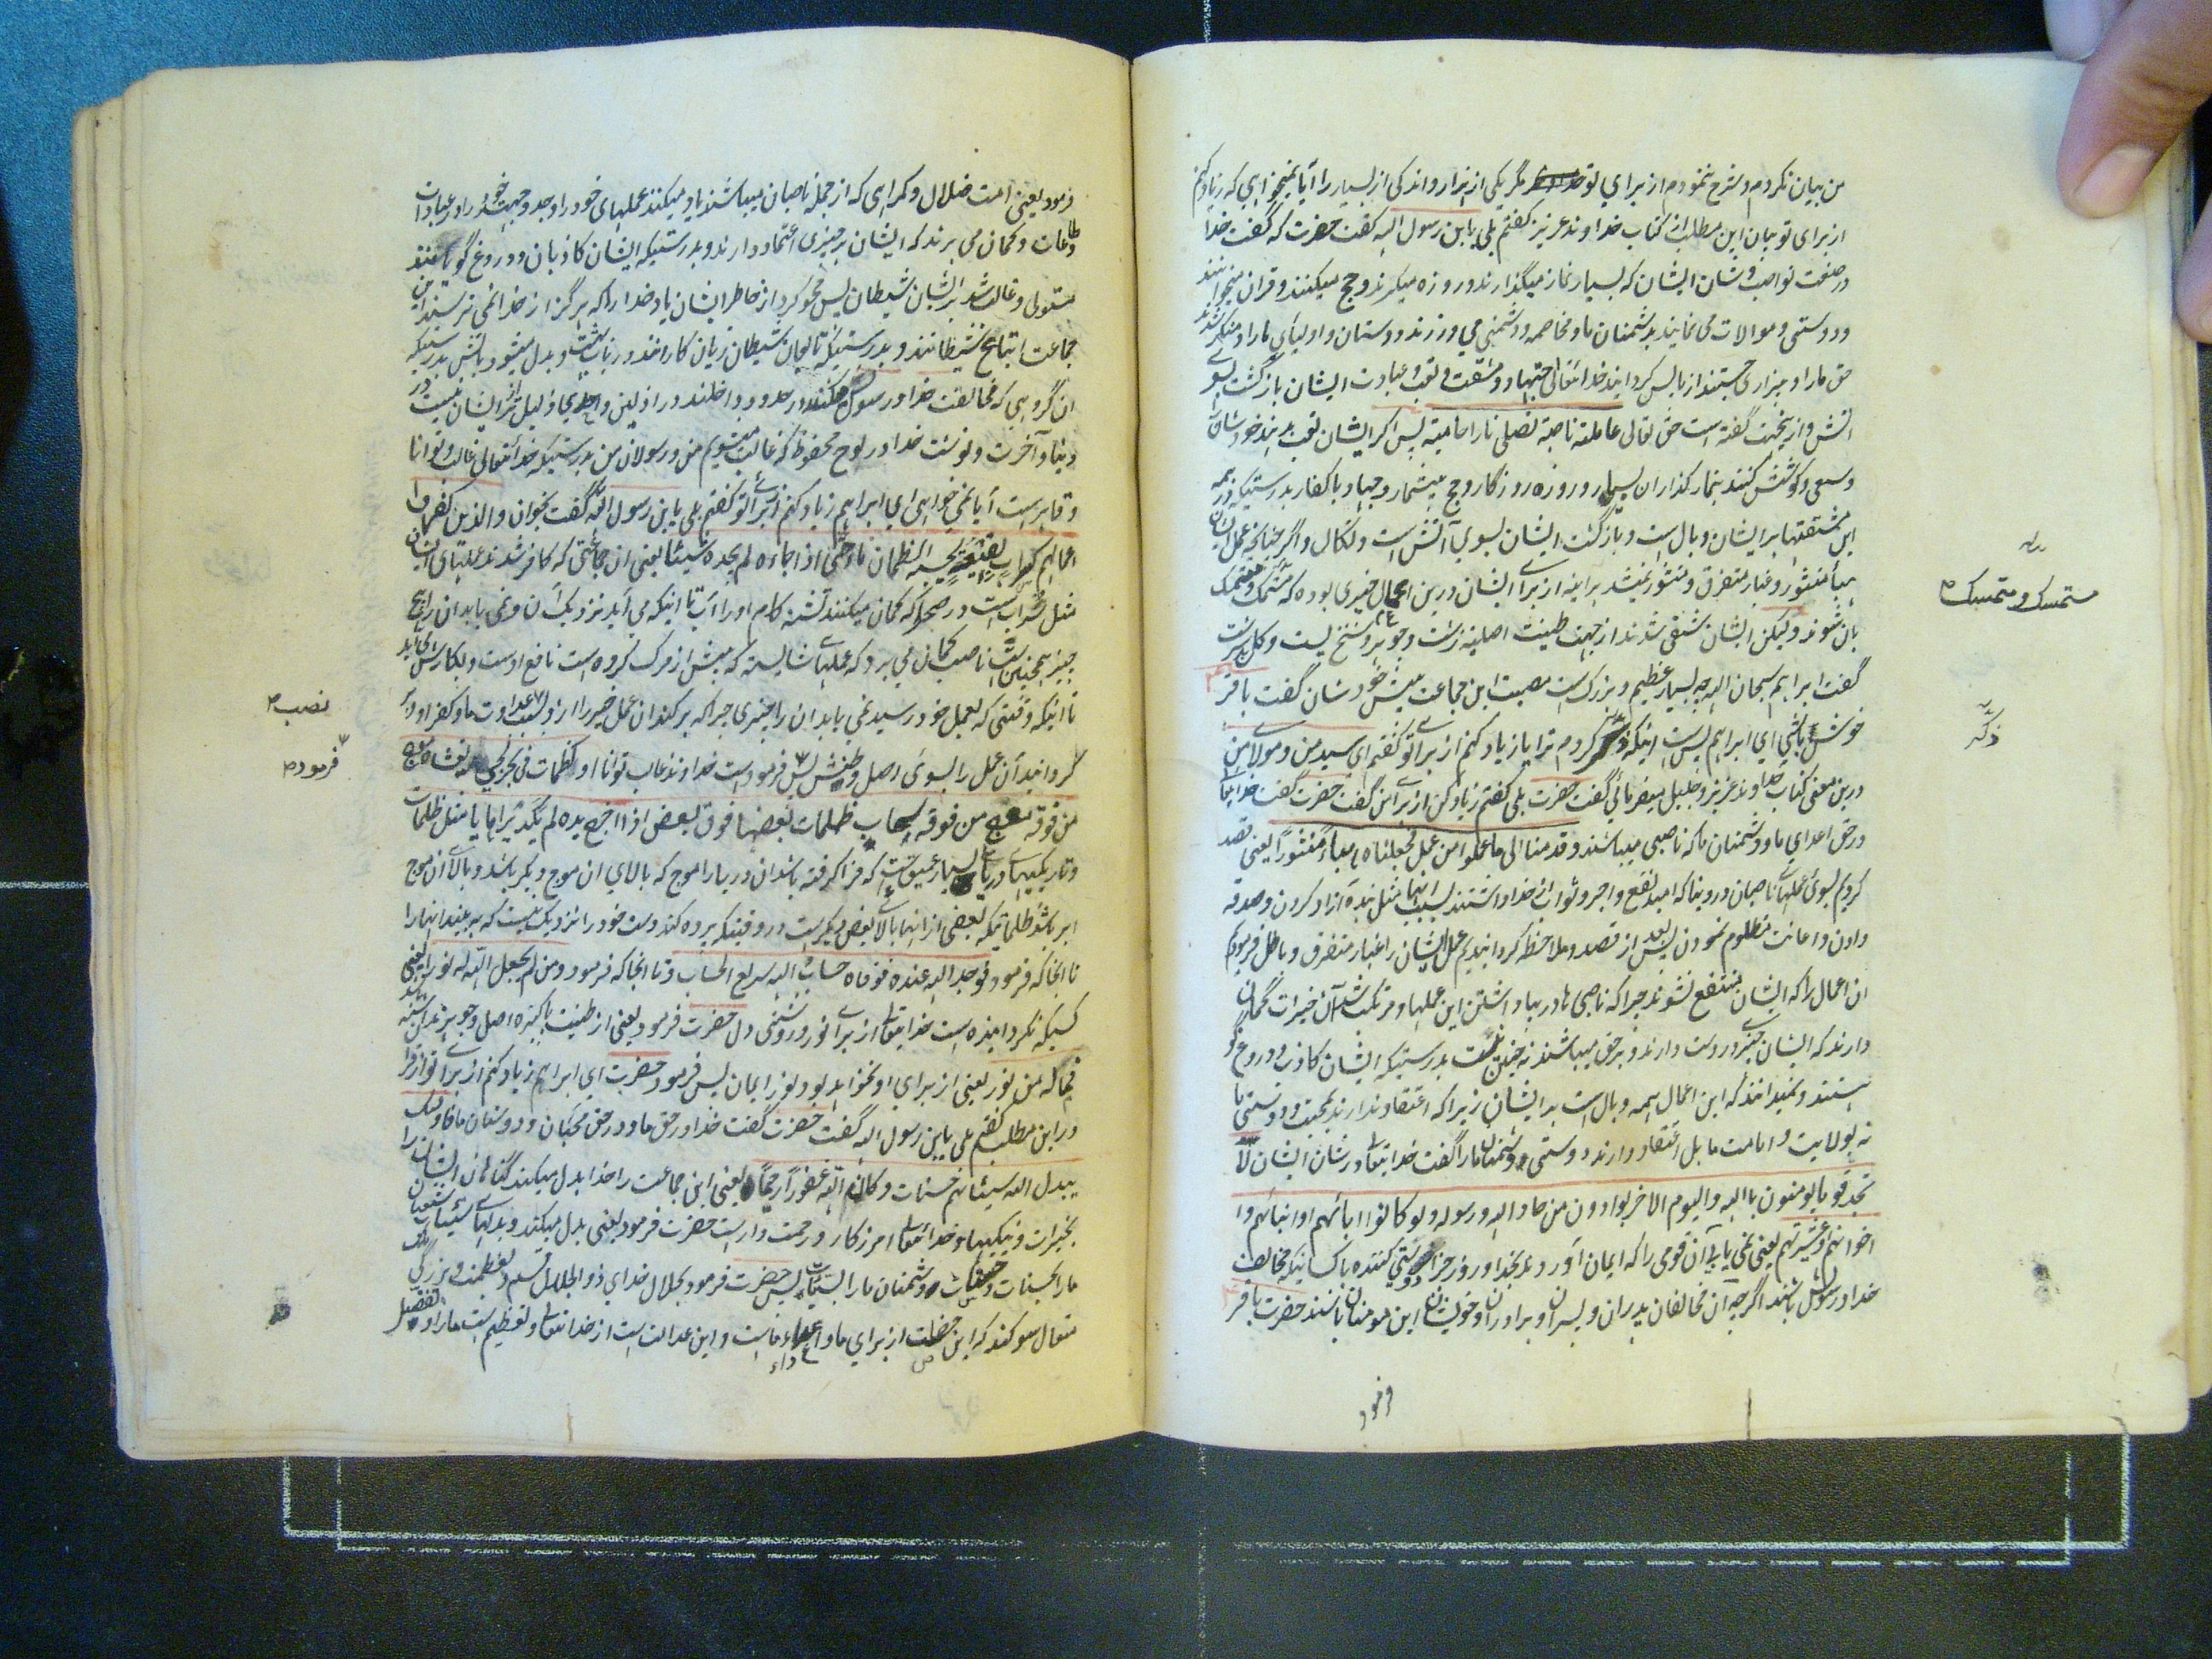 من بیان نکردم و شرح ننمودم از برای تو مگر یکی از هزار و اندکی از بسیار را آیا نمیخواهی که زیاد کنم
از برای تو بیان این مطلب از کتاب خداوند عزیز گفتم بلی یا بن رسول الله گفت حضرت که گفت خدا
در صفت نواصب و شان ایشان که بسیار نماز میگذارند و روزه میگیرند و حج میکنند و قران میخوانند
و دوستی و موالات می نمایند بدشمنان ما و مخاصمه و دشمنی می ورزند دوستان و اولیای ما را و منکر شدند
حق ما را و بیزاری جستند از ما پس گردانید خدا تعالی اجتهاد و مشقت و تعب و عبادت ایشان بازگشت بسوی
آتش و از ینجهت گفته است حق تعالی عاملة ناصبة تصلی نارا حامیة پس اگر ایشان تعب بدهند خودشان
و سعی و کوشش کنند بنماز گذاران بسیار و روزه روزگار و حج بیشمار و جهاد با کفار بدرستیکه همه
این مشقتها بر ایشان وبال است و بازگشت ایشان بسوی آتش است و نکال و اگر چنانچه عمل ایشان
هباء منثور و غبار متفرق و منثور نمیشد هر اینه از برای ایشان درین اعمال خیری بوده که متمسک
بآن شوند ولیکن ایشان شقی شدند از جهت طینت اصلیه زشت و جوهر و سنخ
گفت ابراهیم سبحان الله چه بسیار عظیم و بزرگ است مصیبت این جماعت پیش خودشان گفت باقر
خوش باشی ای ابراهیم پس است اینکه ذکر کردم ترا یا زیاد کنم از برای تو گفتم ای سید من و مولای من
درین معنی کتاب خداوند عزیز و جلیل میفرمائی گفت حضرت بلی گفتم زیاد کن از برای من گفت حضرت گفت خدایتعالی
در حق اعدای ما و دشمنان ما که ناصبی میباشند و قدمنا الی ما عملوا من عمل فجعلناه هباء منثورا یعنی قصد
کردیم بسوی عملهای ناصبان در دنیا که امید نفع و اجر و ثواب از خدا داشتند بسبب انها مثل بنده آزاد کردن و صدقه
دادن و اعانت مظلوم نمودن پس بعد از قصد و ملاحظه گردانیدیم عمل ایشان را غبار متفرق و باطل
ان اعمال را که ایشان منتفع نشوند چرا که ناصبی ها در بها داشتن این عملها و مرتکب شدن آن خیرات گمان
دارند که ایشان چیزی در دست دارند و بر حق میباشند نه چنین است بدرستیکه ایشان کاذب و دروغ گو
هستند و نمیدانند که این اعمال همه وبال است بر ایشان زیرا که اعتقاد ندارند بمحبت و دوستی ما
نه بولایت و امامت ما بل اعتقاد دارند دوستی دشمنان ما را گفت خدایتعالی در شان ایشان لا
تجد قوما یؤمنون بالله والیوم الاخر یوادون من حاد الله و رسوله ولو کانوا ابائهم او ابنائهم او
اخوانهم او عشیرتهم یعنی نمی یابی آن قومی را که ایمان آوردند بخدا و روز جزا دوستی کننده با کسانیکه مخالف
خدا و رسولش باشند اگر چه آن مخالفان پدران و پسران و برادران و خویشان این مومنان باشند حضرت باقر
فرمود
متمسک و متمسک
ذکر
فرمود یعنی امت ضلال و گمراهی که از جمله ناصبان میباشند یاد میکنند عملهای خود را و جد و جهد خود را در عبادات
و طاعات و گمان می برند که ایشان بر چیزی اعتماد دارند و بدرستیکه ایشان کاذبان و دروغ گویانند
مستولی و غالب شد بر ایشان شیطان پس محو کرد از خاطر ایشان یاد خدا را که هرگز از خدا نمی ترسند این
جماعت اتباع شیطانند و بدرستیکه تابعان شیطان زیان کارانند
ان گروهی که مخالفت خدا و رسول میکنند داخلند در اذلین و احدی ذلیل تر از ایشان نیست در
دنیا و آخرت و نوشت خدا در لوح محفوظ که غالب میشویم من و رسولان من بدرستیکه خدا تعالی غالب و توانا
و قاهر است آیا نمی خواهی ای ابراهیم زیاد کنم از برای تو گفتم بلی یا بن رسول الله گفت بخوان والذین کفروا
اعمالهم کسراب بقیعة یحسبه الظمان ماء حتی اذا جاءه لم یجده شیئا یعنی ان جماعتی که کافر شدند عملهای ایشان
مثل سراب است در صحرا که گمان میکنند تشنه کام او را آب تا اینکه می آید نزدیک آن و نمی یابد ان را هیچ
چیز همچنین است ناصب گمان می برد که عملهای شایسته که پیش از مرگ کرده است نافع اوست و بکارش می آید
تا اینکه وقتی که بعمل خود رسید نمی یابد ان را چیزی چرا که برکند ان عمل خیر را از و بسبب عداوت ما و کفر او و بر
گردانید آن عمل را بسوی اصل و طینتش پس فرموده است خداوند غالب توانا او کظلمات فی بحر لجی یغشاه موج
من فوقه موج من فوقه سحاب ظلمات بعضها فوق بعض اذا اخرج یده لم یکد یراها یا مثل ظلمات
و تاریکیهای دریای بسیار عمیق است که فرا گرفته باشد ان دریا را موج که بالای ان موج دیگر باشد و بالای ان موج
ابر باشد ظلماتیکه بعضی از انها بالای بعض دیگر است در وقتیکه بیرون کند دست خود را نزدیک نیست که به بیند انها را
تا انجا که فرمود فوجد الله عنده فوفاه حسابه والله سریع الحساب و تا انجا که فرمود و من لم یجعل الله له نورا یعنی
کسیکه نگردانیده است خدایتعالی از برای او نور و روشنی دل حضرت فرمود یعنی از طینت پاکیزه اصل و جوهر
فما له من نور یعنی از برای او نخواهد بود نور ایمان پس فرمود حضرت ای ابراهیم زیاد کنم از برای تو از قران
در این مطلب گفتم بلی یا بن رسول الله گفت حضرت گفت خدا در حق ما و در حق محبان و دوستان ما فاولئک
یبدل الله سیئاتهم حسنات و کان الله غفورا رحیما یعنی این جماعت را خدا بدل میکند گناهان ایشان را
بخیرات و نیکیها و خدا تعالی امرزگار و رحمت دار است حضرت فرمود یعنی بدل میکند سیئات شیعیان
ما را بحسنات و حسنات دشمنان ما را بسیئات پس حضرت فرمود بجلال خدای ذوالجلال قسم و بعظمت و بزرگی
متعال سوگند که این خصلت از برای ما و اعداء ماست و این عدالت است از خدا تعالی و تعظیم است ما را و تفضیل
نصب
فرموده